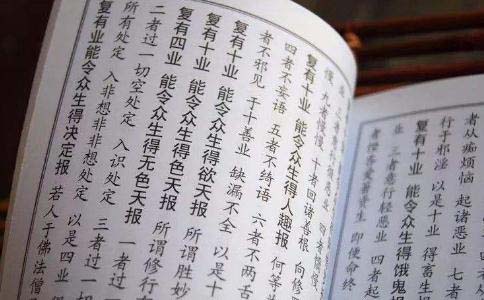 者从痴烦恼 起诸恶业 七者
行于邪淫 以是十业 得畜生
复有十业 能令众生得饿鬼报
业 三者意行轻恶业 四者起
者悭吝爱著资生 即使命终
三者意行微恶业 四者憍慢
慢 九者慢慢 十者回诸善根 向修
复有十业 能令众生得人趣报 何等
四者不妄语 五者不绮语 六者不两舌
者不邪见 于十善业 缺漏不全 以是十
复有十业 能令众生得欲天报 所谓胜妙
复有十业 能令众生得色天报 所谓修行
复有四业 能令众生得无色天报 一者过
二者过一切空处定 入识处定 三者过一切
所有处定 入非非想处定 以是四业 得
复有业 能令众生得决定报 若人于佛法僧